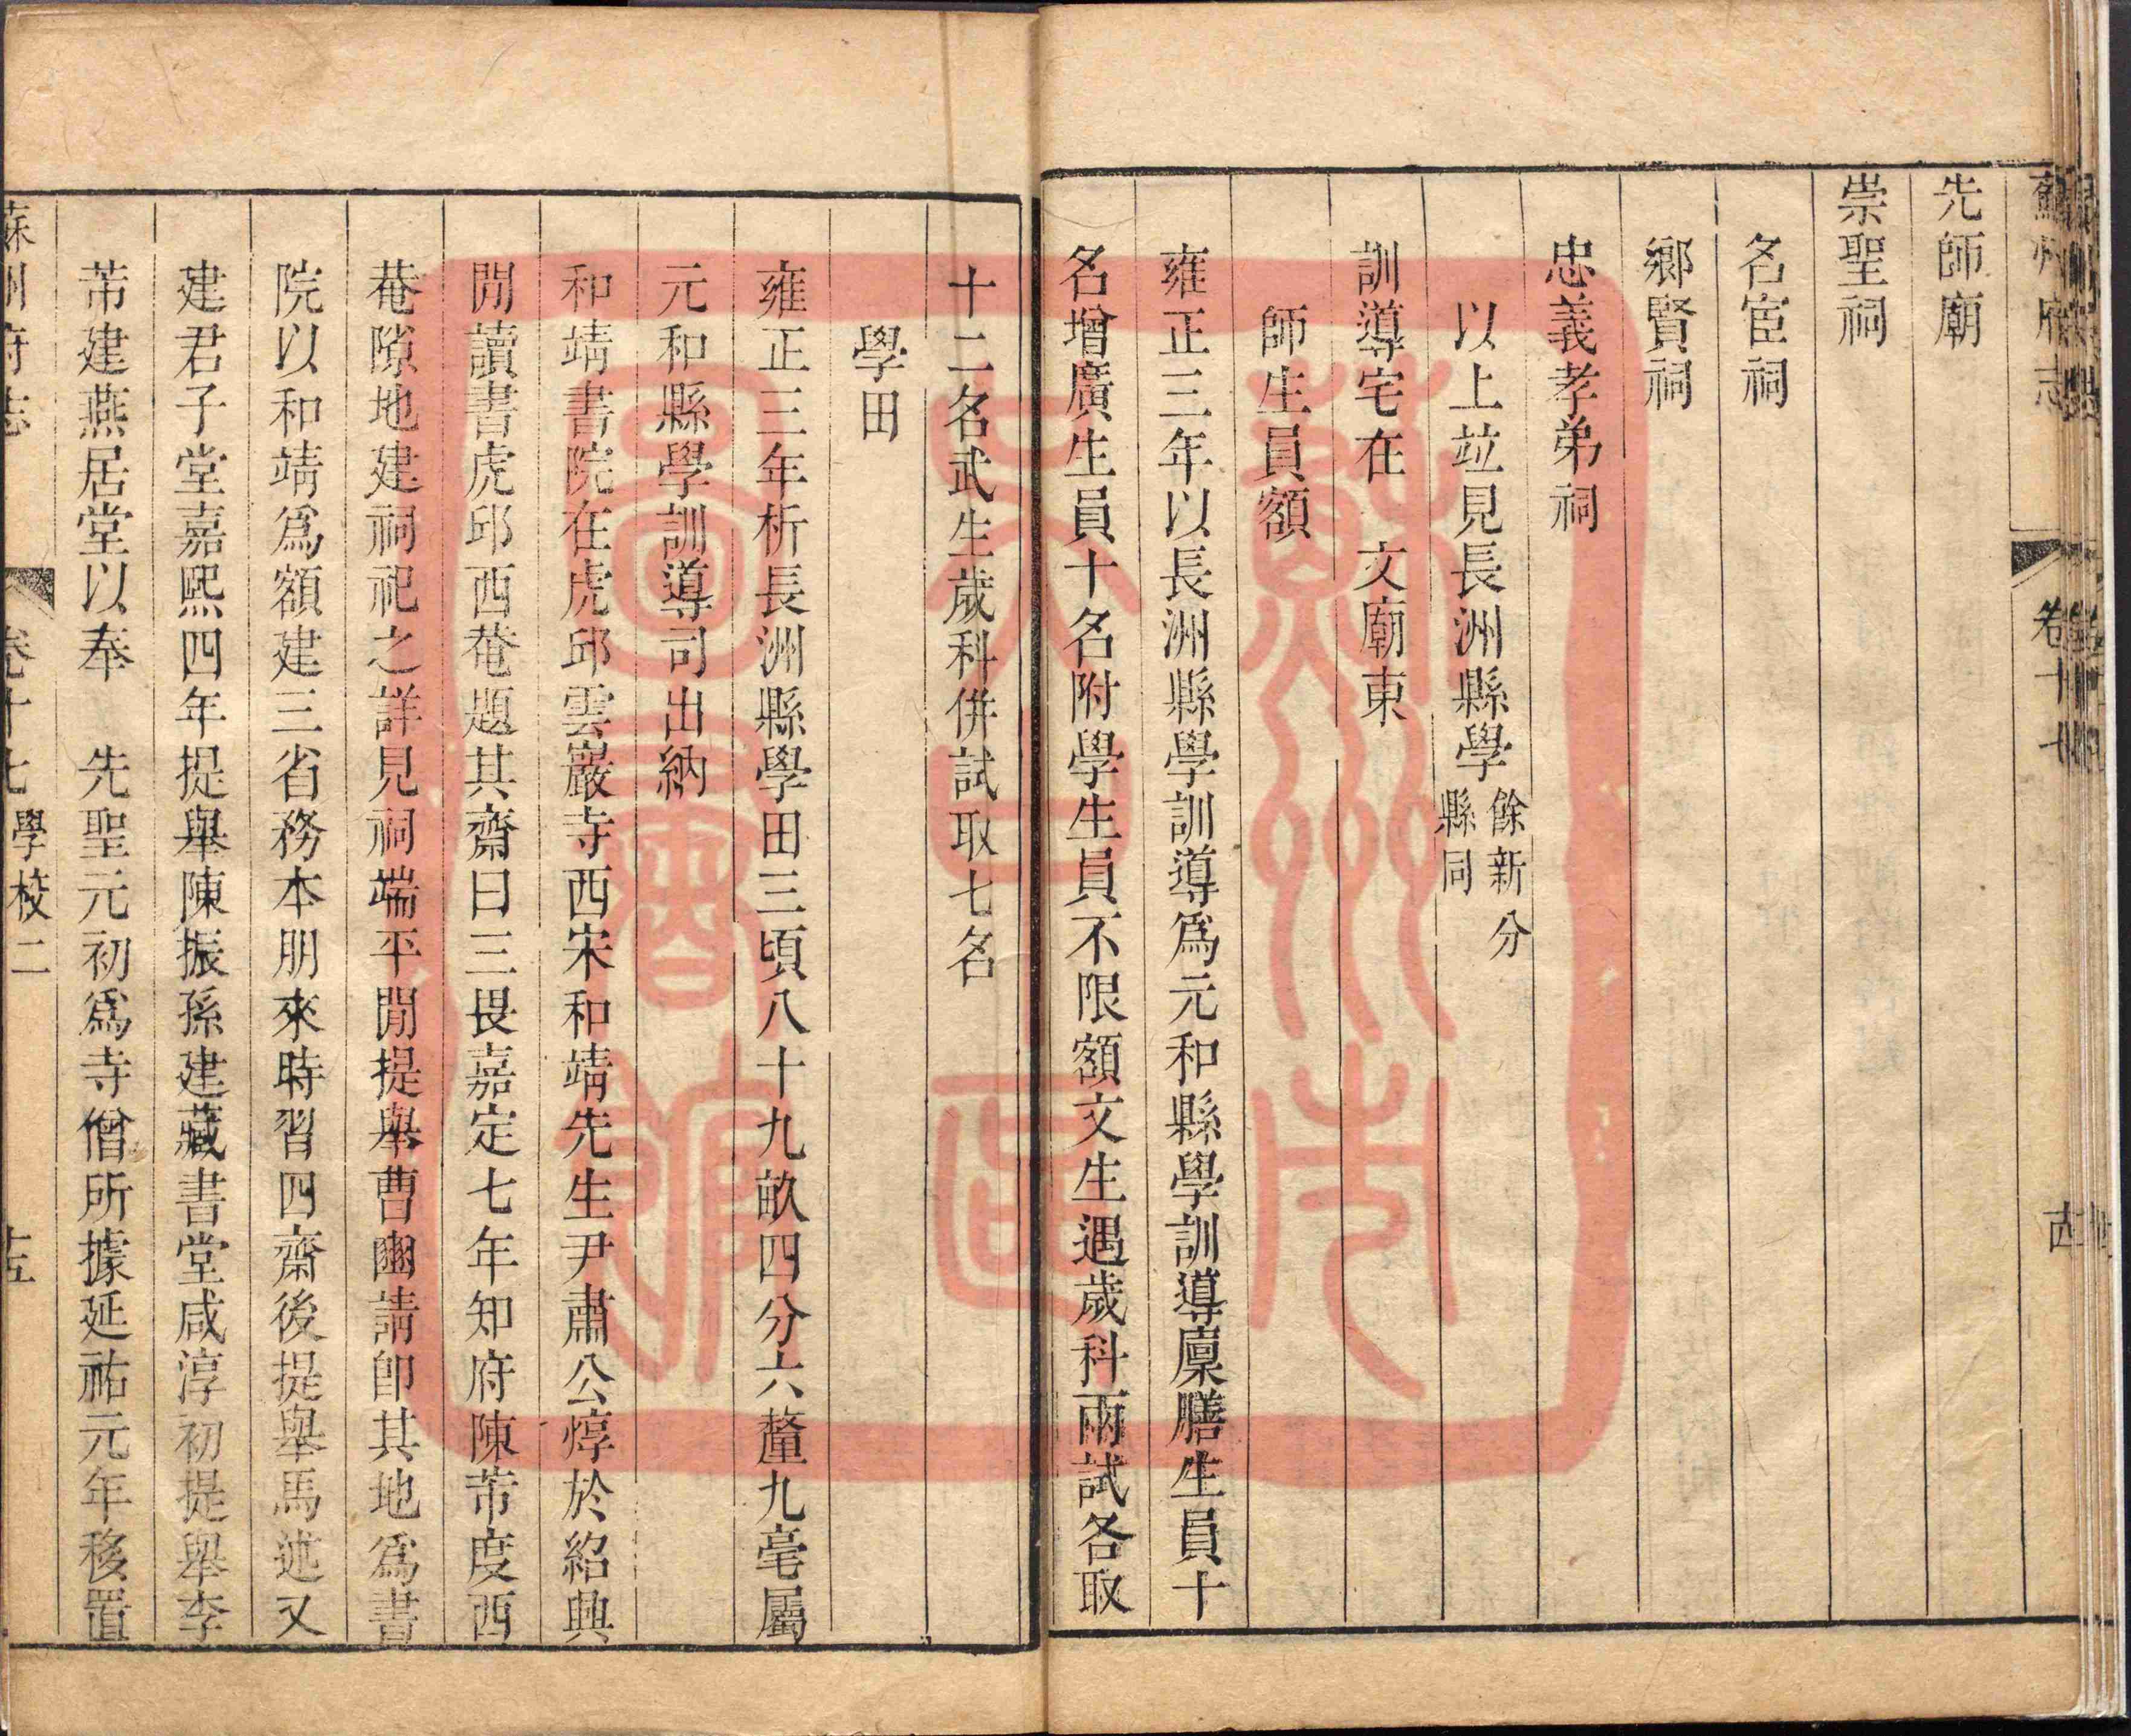 蘇州府志 卷十七 十四
先師廟
崇聖祠
名宦祠
鄉賢祠
忠義孝弟祠
以上竝見長洲縣學 餘新分
縣同
訓導宅在 文廟東
師生員額
雍正三年以長洲縣學訓導爲元和縣學訓導廩膳生員十
名增廣生員十名附學生員不限額文生遇歲科兩試各取
十二名武生歲科併試取七名
學田
雍正三年析長洲縣學田三頃八十九畝四分六釐九毫屬
元和縣學訓導司出納
和靖書院在虎邱雲巖寺西宋和靖先生尹肅公焞於紹興
閒讀書虎邱西菴題其齋曰三畏嘉定七年知府陳芾度西
菴隙地建祠祀之詳見祠端平閒提舉曹豳請卽其地爲書
院以和靖爲額建三省務本朋來時習四齋後提舉馬述又
建君子堂嘉熙四年提舉陳振孫建藏書堂咸淳初提舉李
芾建燕居堂以奉 先聖元初爲寺僧所據延祐元年移置
蘇州府志 卷十七 學校二 十五
蘇州市
圖書館